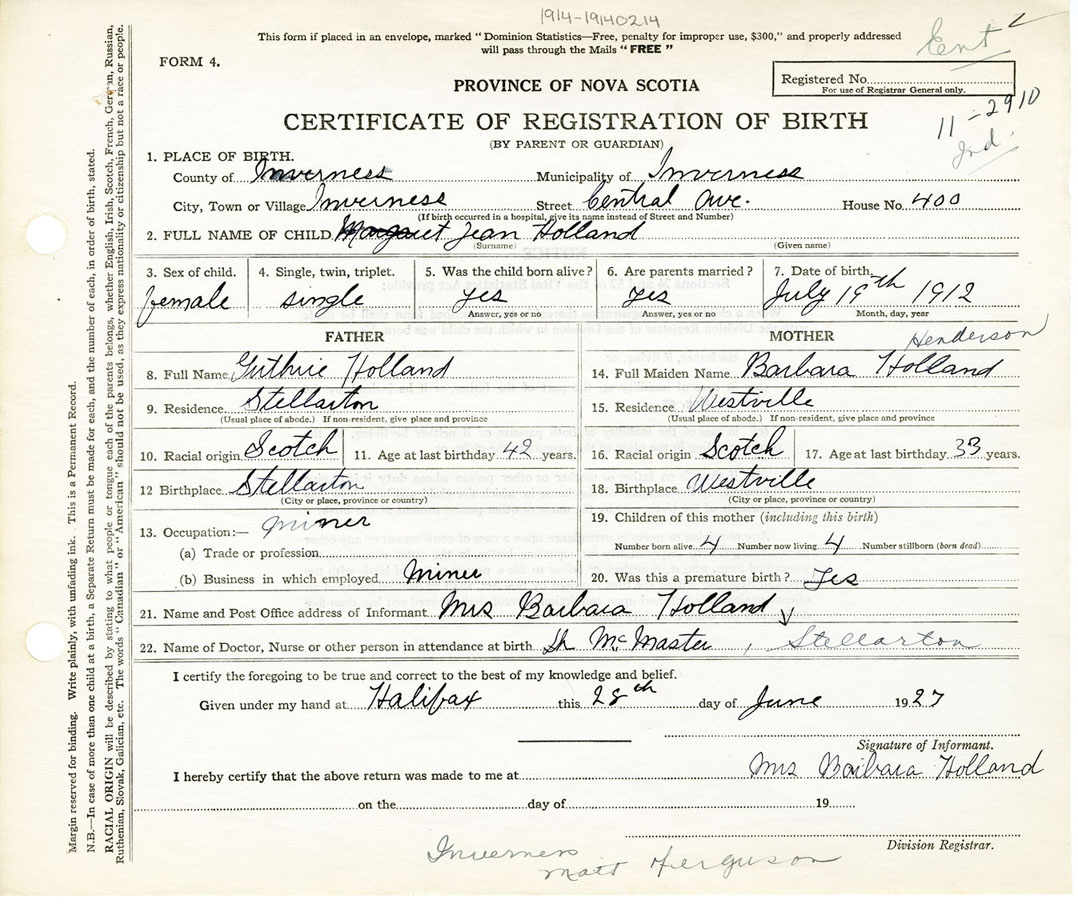 1914-19140214
This form if placed in an envelope, marked "Dominion Statistics—Free, penalty for improper use, $300," and properly addressed
will pass through the Mails "FREE"
Ent
FORM 4.
Registered No.
For use of Registrar General only.
PROVINCE OF NOVA SCOTIA
11-2910
CERTIFICATE OF REGISTRATION OF BIRTH
(BY PARENT OR GUARDIAN)
Ind.
1. PLACE OF BIRTH.
County of Inverness Municipality of Inverness
City, Town or Village Inverness Street Central Ave. House No. 400
(If birth occurred in a hospital, give its name instead of Street and Number)
2. FULL NAME OF CHILD Margaret Jean Holland
(Surname) (Given name)
3. Sex of child. 4. Single, twin, triplet. 5. Was the child born alive? 6. Are parents married? 7. Date of birth
female single yes yes July 19th 1912
Answer, yes or no Answer, yes or no Month, day, year
FATHER MOTHER Henderson
8. Full Name Guthrie Holland 14. Full Maiden Name Barbara Holland
9. Residence Stellarton 15. Residence Westville
(Usual place of abode.) If non-resident, give place and province (Usual place of abode.) If non-resident, give place and province
10. Racial origin Scotch 11. Age at last birthday 42 years. 16. Racial origin Scotch 17. Age at last birthday 33 years.
12 Birthplace Stellarton 18. Birthplace Westville
(City or place, province or country) (City or place, province or country)
13. Occupation:— miner 19. Children of this mother (including this birth)
(a) Trade or profession Number born alive 4 Number now living 4 Number stillborn (born dead)
(b) Business in which employed Miner 20. Was this a premature birth? Yes
21. Name and Post Office address of Informant Mrs Barbara Holland
22. Name of Doctor, Nurse or other person in attendance at birth McMaster, Stellarton
I certify the foregoing to be true and correct to the best of my knowledge and belief.
Given under my hand at Halifax this 28th day of June 1927
Signature of Informant.
I hereby certify that the above return was made to me at Mrs Barbara Holland
on the day of 19
Division Registrar.
Inverness
Matt Ferguson
Margin reserved for binding. Write plainly, with unfading ink. This is a Permanent Record.
N.B.—In case of more than one child at a birth, a Separate Return must be made for each, and the number of each, in order of birth, stated.
RACIAL ORIGIN will be described by stating to what people or tongue each of the parents belongs, whether English, Irish, Scotch, French, German, Russian,
Ruthenian, Slovak, Galician, etc. The words "Canadian" or "American" should not be used, as they express nationality or citizenship but not a race or people.